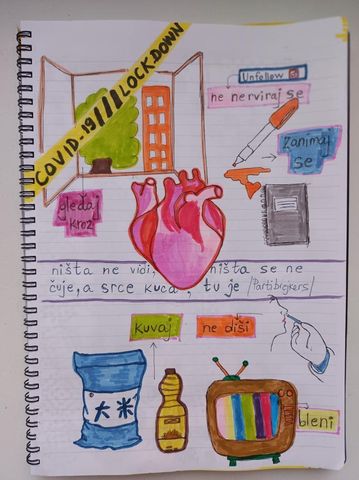 COVID-19///LOCKDOWN
Unfollow
ne nerviraj se
zanimaj
se
gledaj
kroz
ništa ne vidi, ništa se ne
čuje, a srce kuca, tu je /Partibrejkers/
kuvaj
ne diši
大米
bleni